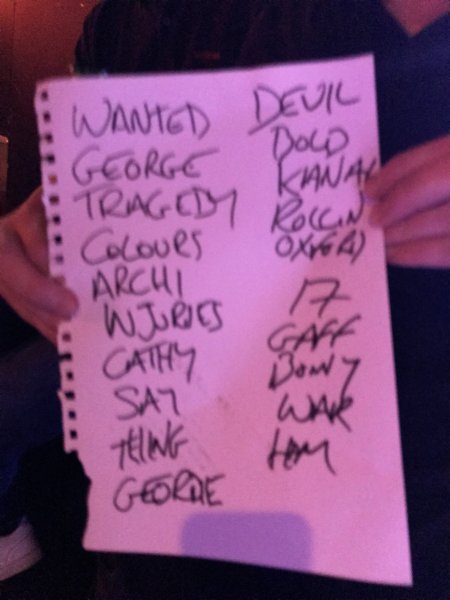 WANTED
GEORGE
TRAGEDY
COLOURS
ARCHI
INJURIES
CATHY
SAY
THING
GEORDIE
DEVIL
BOLD
KANAL
ROLLIN
17
GAFF
BONNY
WAR